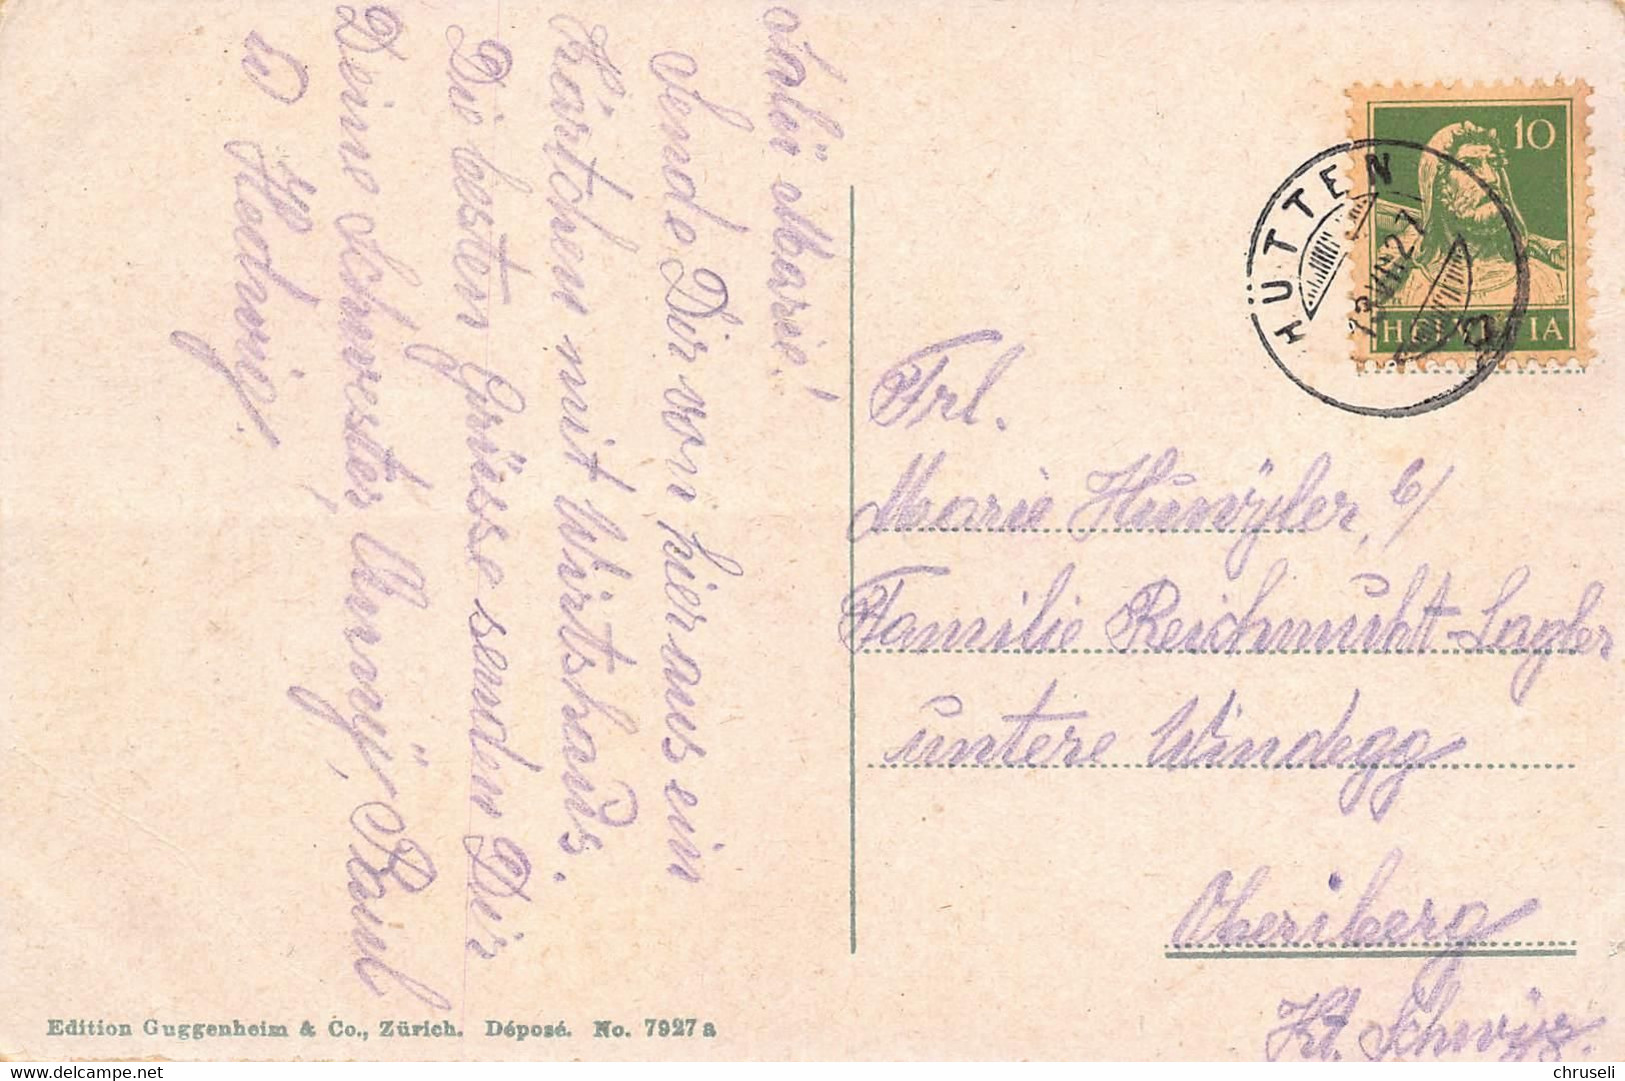 Marie!
Sende Dir von hier aus ein
Kärtchen mit Wirtshaus.
Die besten Grüsse senden Dir
Deine Schwester, Paul
Hedwig.
HÜTTEN
10
HELVETIA
Frl.
Marie Hunzyler, b/
Familie Reichmuht-
untere Windegg
Oberiberg
Kt. Schwyz.
Edition Guggenheim & Co., Zürich. Déposé. No. 7927 a
delcampe.net
chruseli